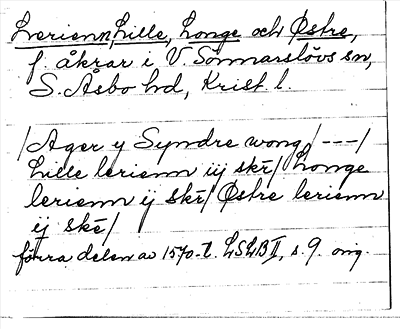 Lerienn, Lille, Longe och Østre,
f. åkrar i V. Sönnarslövs sn,
S. Åsbo hd, Krist. l.
/Ager y Syndre wong/ ---/
Lille lerienn iij skr̄/ Longe
lerienn ij skr̄/ Østre lerienn
ij skr̄/
förra delen av 1570-t. LSLB II, s. 9. orig.